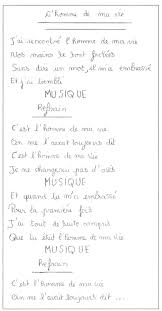 L'homme de ma vie
J'ai rencontré l'homme de ma vie
Nos mains se sont frôlées
Sans dire un mot, il m'a embrassée
Et j'ai tremblé
MUSIQUE
Refrain
C'est l'homme de ma vie
On me l'avait toujours dit
C'est l'homme de ma vie
Je ne changerai pas d'avis
MUSIQUE
Et quand il m'a embrassé
Pour la première fois
J'ai tout de suite compris
Que c'était l'homme de ma vie
MUSIQUE
Refrain
C'est l'homme de ma vie
On me l'avait toujours dit ...